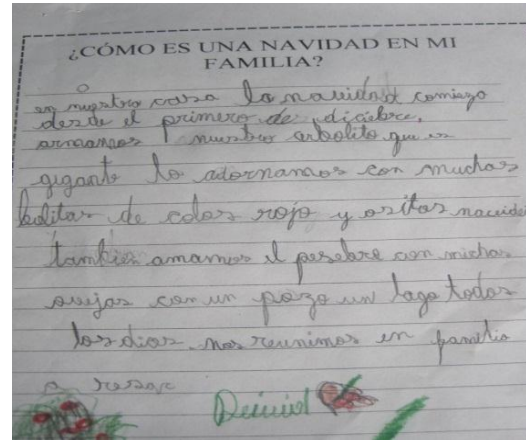 ¿CÓMO ES UNA NAVIDAD EN MI
FAMILIA?
en nuestra casa la navidad comiezo
desde el primero de diciebre,
armamos nuestro arbolito que es
gigante lo adornamos con muchas
bolitas de color rojo y ositos navide
tambien amamos el pesebre con michas
ovejas con un pozo un lago todos
los dias nos reunimos en familia
a resar